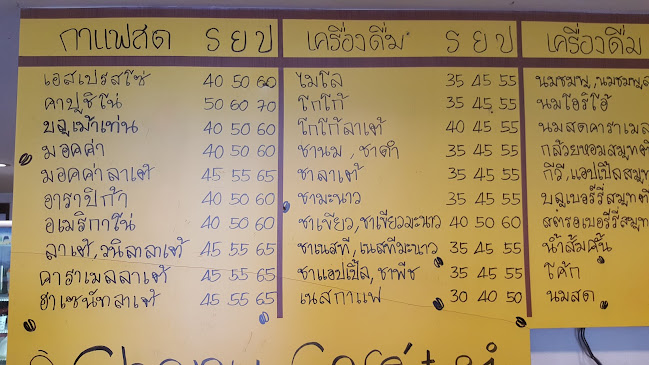 กาแฟสด ร ย ป
เอสเปรสโซ่ 40 50 60
คาปูชิโน่ 50 60 70
บลูเม้าเท่น 40 50 60
มอคค่า 40 50 60
มอคค่าลาเต้ 45 55 65
อาราบิก้า 40 50 60
อเมริกาโน่ 40 50 60
ลาเต้,วนิลาลาเต้ 45 55 65
คาราเมลลาเต้ 45 55 65
ฮาเซนัทลาเต้ 45 55 65
เครื่องดื่ม ร ย ป
ไมโล 35 45 55
โกโก้ 35 45 55
โกโก้ลาเต้ 40 45 55
ชานม , ชาดำ 35 45 55
ชาลาเต้ 35 45 55
ชามะนาว 35 45 55
ชาเขียว,ชาเขียวมะนาว 40 50 60
ชาเนสที,เนสทีมะนาว 35 45 55
ชาแอปเปิ้ล,ชาพีช 35 45 55
เนสกาแฟ 30 40 50
เครื่องดื่ม
นมชมพู,นมชมพู
นมโอริโอ้
นมสดคาราเมล
กล้วยหอมสมูทตี้
กีวี,แอปเปิ้ลสมูท
บลูเบอร์รี่สมูทตี้
สตรอเบอร์รี่สมูท
น้ำส้มคั้น
โค้ก
นมสด